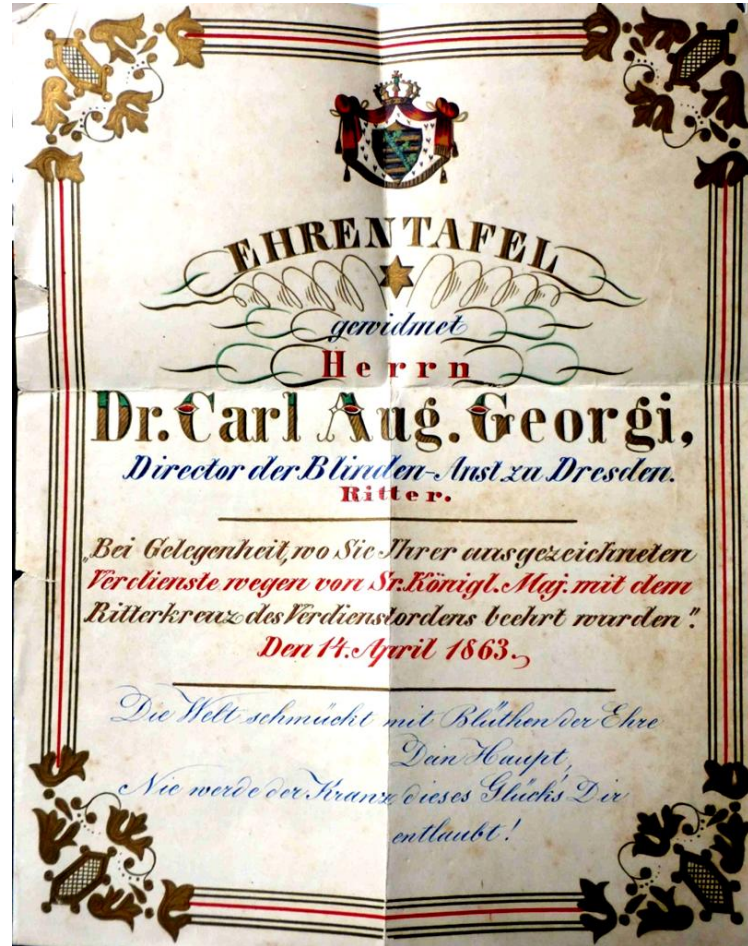 EHRENTAFEL
gewidmet
Herrn
Dr. Carl Aug. Georgi,
Director der Blinden-Anst. zu Dresden.
Ritter.
„Bei Gelegenheit, wo Sie Ihrer ausgezeichneten
Verdienste wegen von Sr. Königl. Maj. mit dem
Ritterkreuz des Verdienstordens beehrt wurden".
Den 14. April 1863.
Die Welt schmückt mit Blüthen der Ehre
Dein Haupt,
Nie werde der Kranz dieses Glücks Dir
entlaubt!